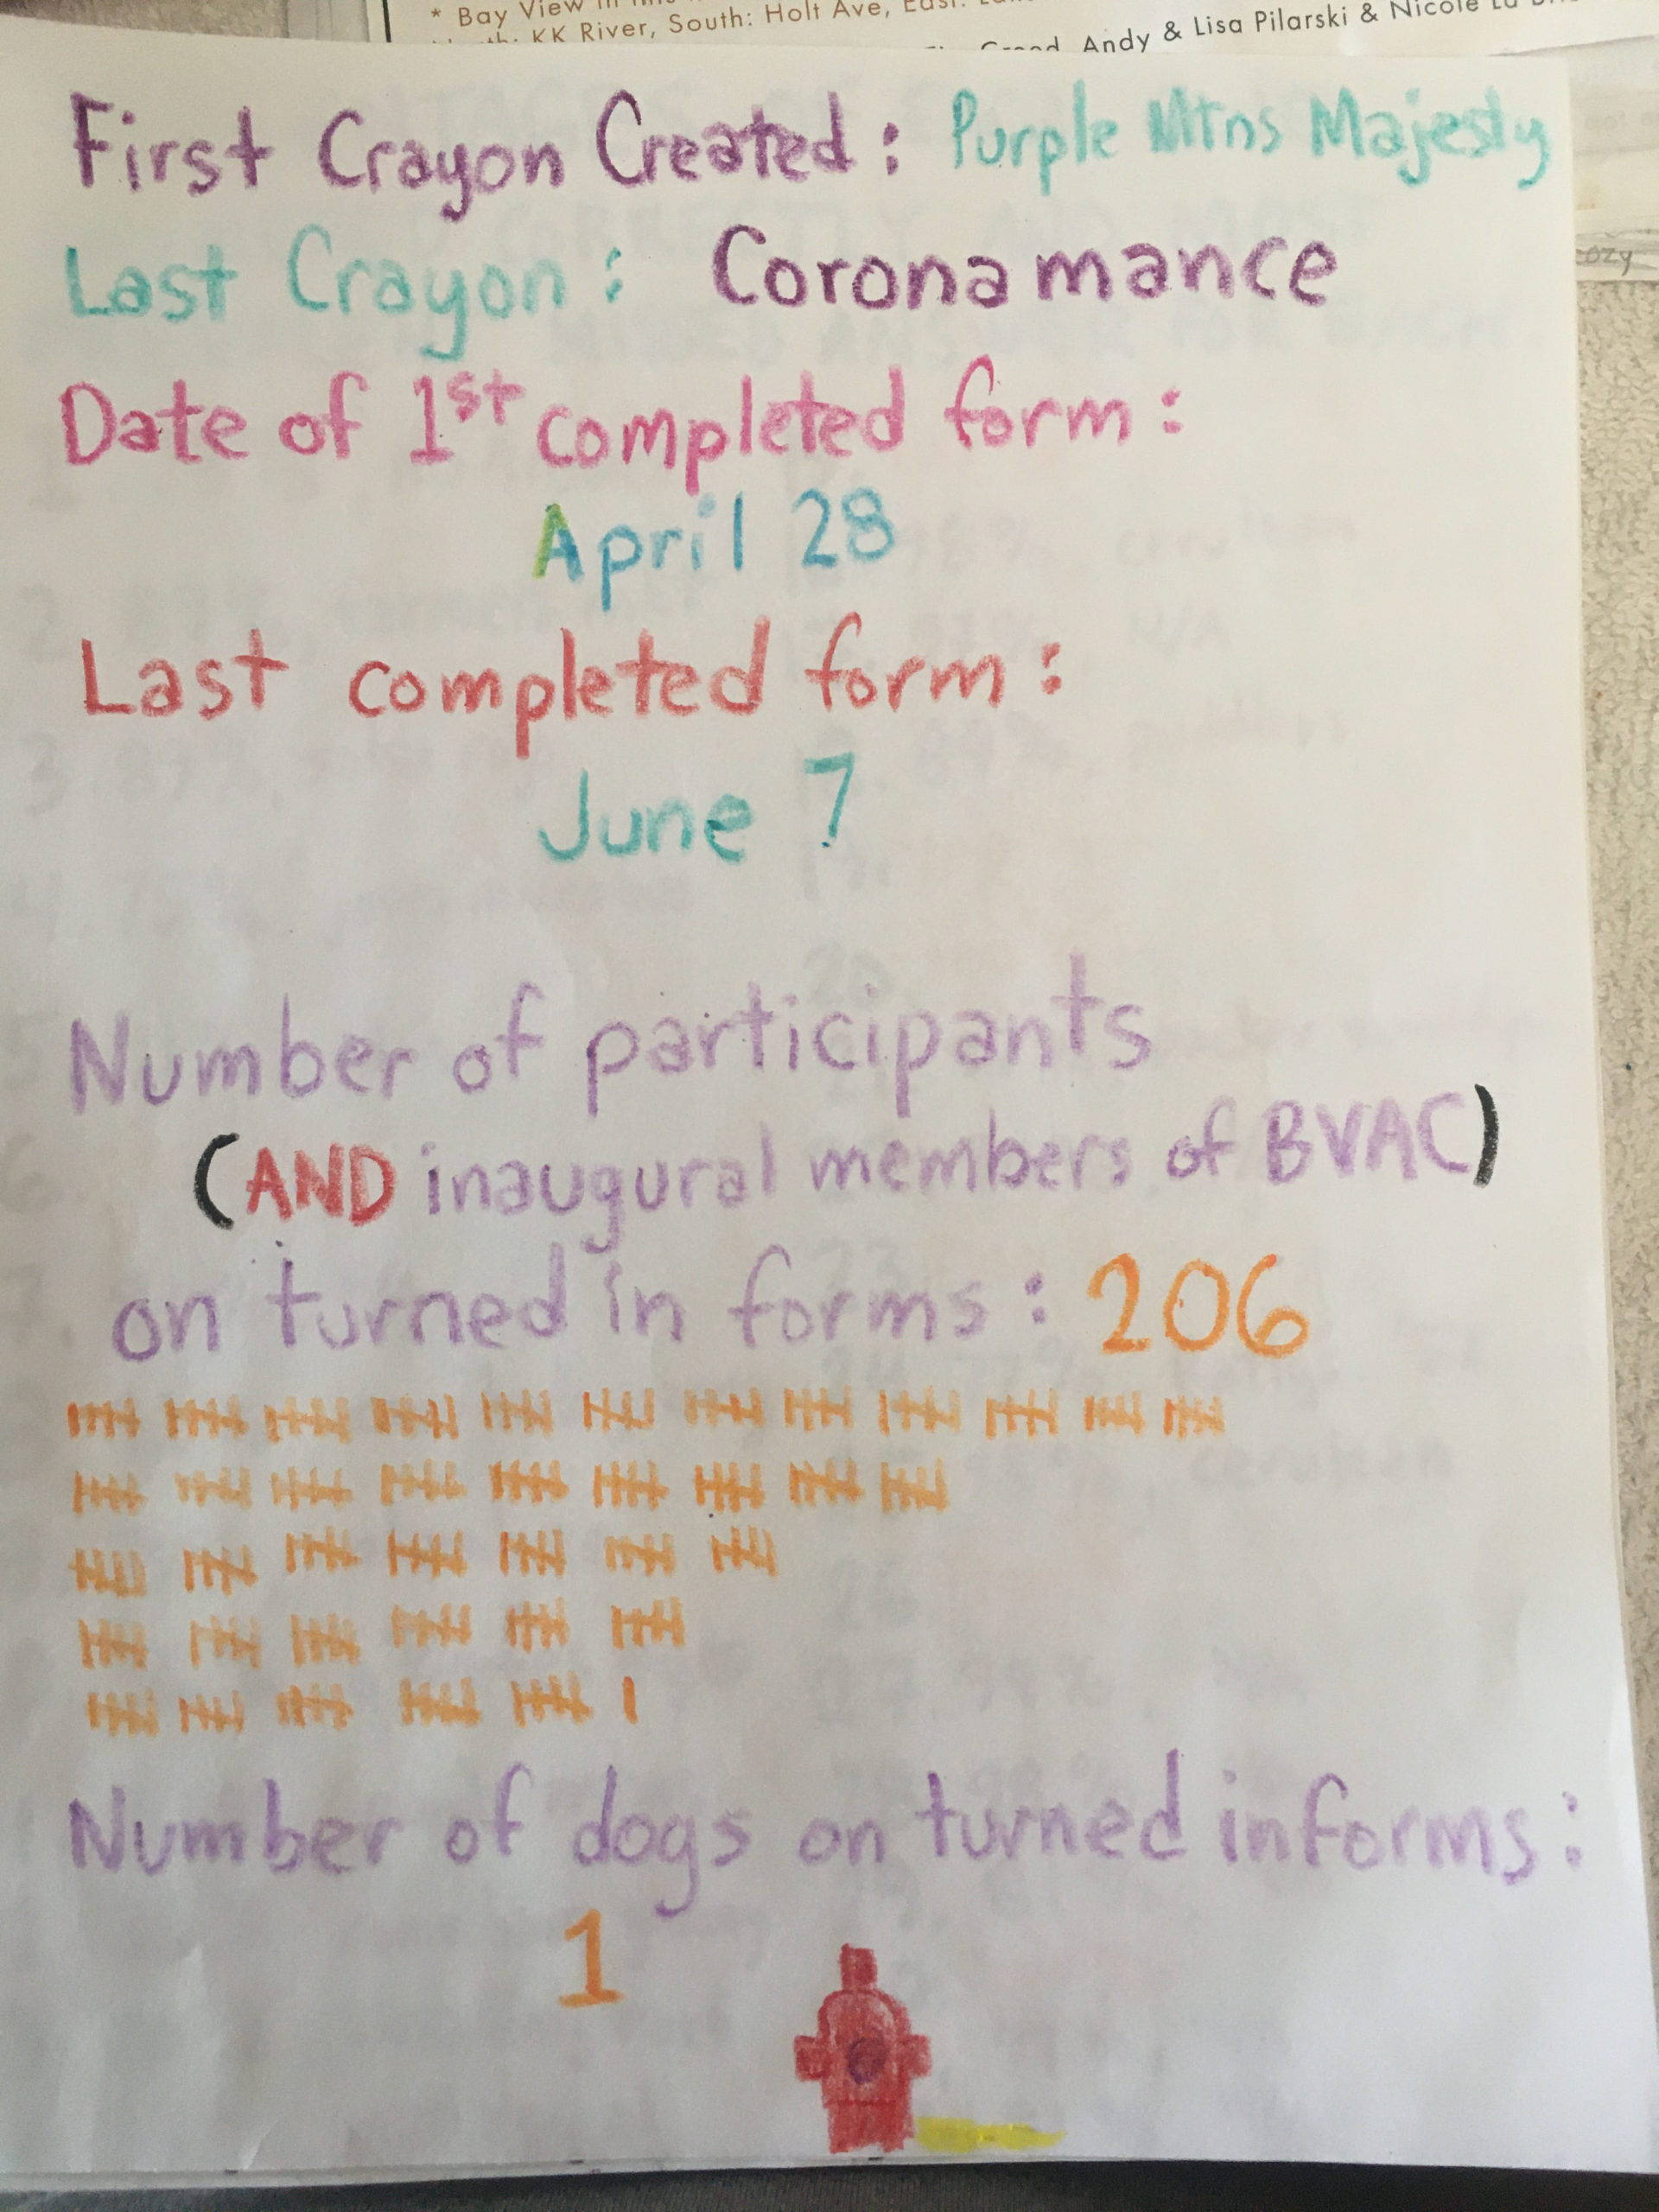 * Bay View in
KK River, South: Holt Ave, East:
Andy & Lisa Pilarski & Nicole
ozy
First Crayon Created: Purple Mtns Majesty
Last Crayon: Coronamance
Date of 1st completed form:
April 28
Last completed form:
June 7
Number of participants
(AND inaugural members of BVAC)
on turned in forms: 206
Number of dogs on turned in forms:
1